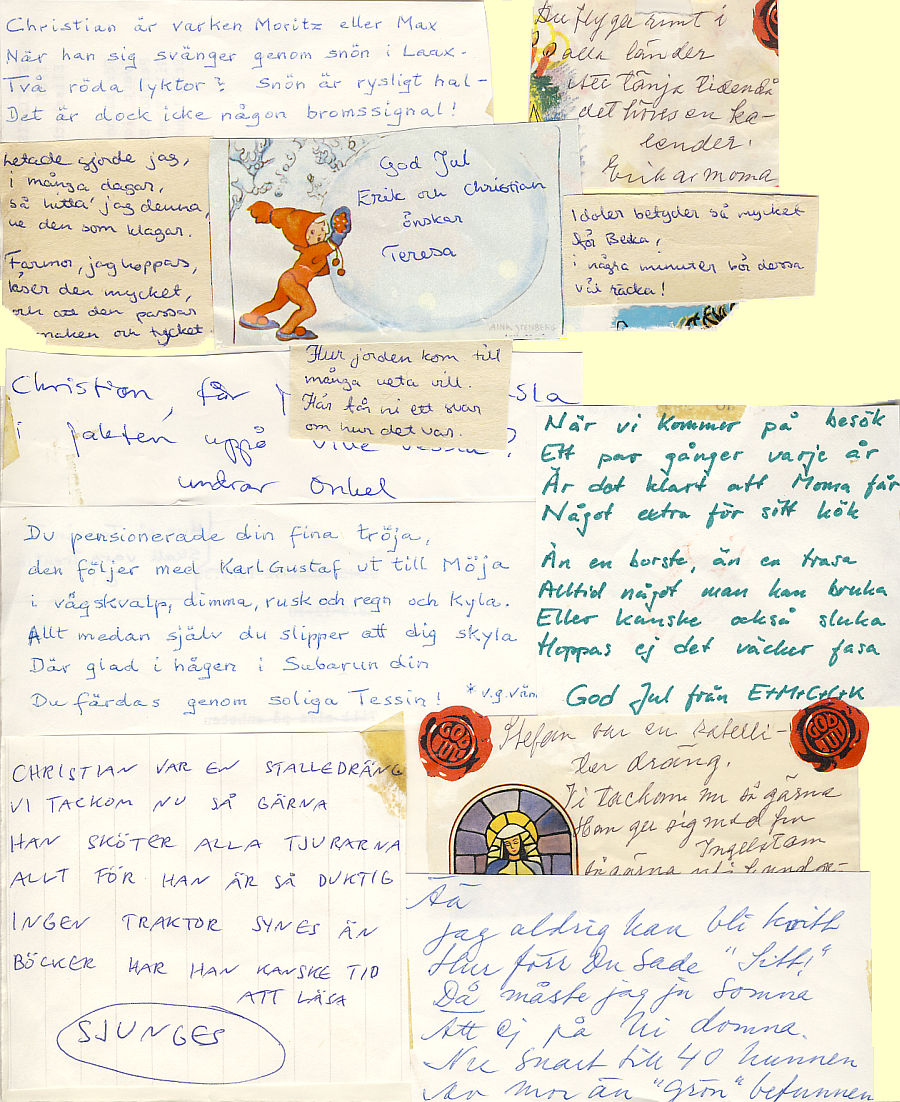 Christian är varken Moritz eller Max
När han sig svänger genom snön i Laax -
Två röda lyktor? Snön är rysligt hal -
Det är dock icke någon bromssignal!
Du flyger amt i
alla länder
att tänja tiden då
det höves en ka-
lender.
Erik as moma
letade gjorde jag,
i många dagar,
så hitta' jag denna,
ve den som klagar.
Farmor, jag hoppas,
läser den mycket,
och att den passar
smaken och tycket
God Jul
Erik och Christian
önskar
Teresa
AINA STENBERG
Idoler betyder så mycket
för Beska,
i några minuter bör dessa
väl räcka!
Hur jorden kom till
många veta vill.
Här får ni ett svar
om hur det var.
Christian, får
i jakten uppå
undrar Onkel
När vi kommer på besök
Ett par gånger varje år
Är det klart att Moma får
Något extra för sitt kök
Än en borste, än en trasa
Alltid något man kan bruka
Eller kanske också sluka
Hoppas ej det väcker fasa
God Jul från E+M+C+C+K
Du pensionerade din fina tröja,
den följer med Karl Gustaf ut till Möja
i vågskvalp, dimma, rusk och regn och kyla.
Allt medan själv du slipper att dig skyla
Där glad i hågen i Subarun din
Du färdas genom soliga Tessin! * v.g. vän
CHRISTIAN VAR EN STALLEDRÄNG
VI TACKOM NU SÅ GÄRNA
HAN SKÖTER ALLA TJURARNA
ALLT FÖR HAN ÄR SÅ DUKTIG
INGEN TRAKTOR SYNES ÄN
BÖCKER HAR HAN KANSKE TID
ATT LÄSA
SJUNGES
GOD JUL
GOD JUL
Stefan var en satelli-
ter dräng.
Vi tackom nu så gärna
Han ger sig med fru
Ingelstam
så gärna
Åå
jag aldrig kan bli kvitt
Hur förr Du sade "Sitt!"
Då måste jag ju somna
Att ej på Ni domna.
Nu snart till 40 hunnen
av mor än "grön" befunnen